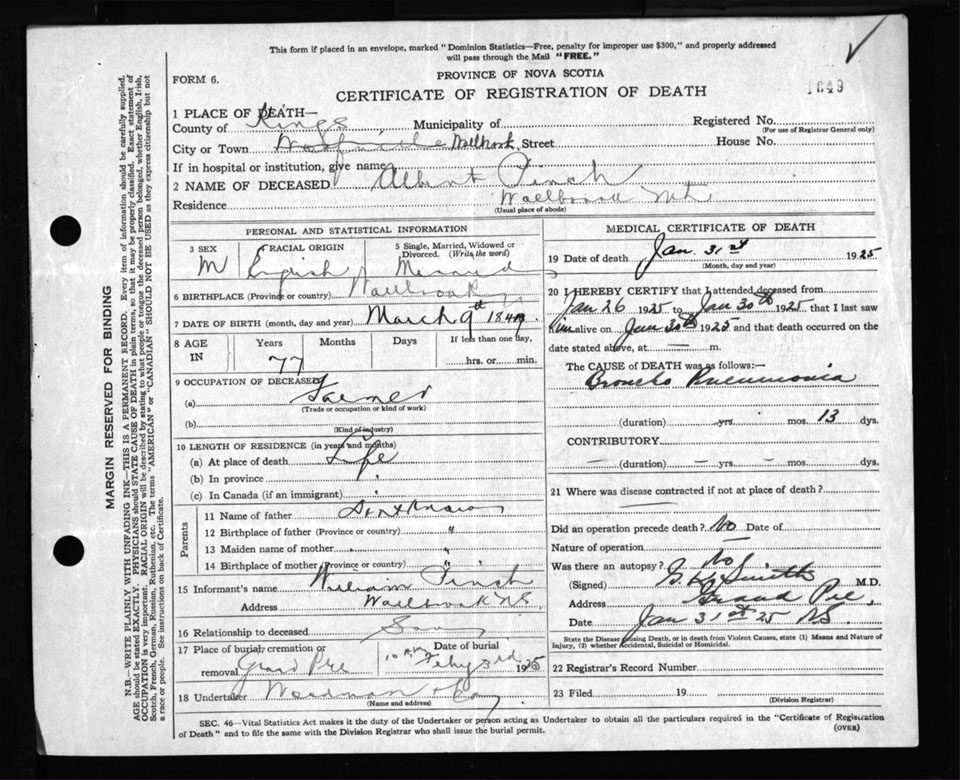 This form if placed in an envelope, marked "Dominion Statistics—Free, penalty for improper use $300," and properly addressed
will pass through the Mail "FREE."
PROVINCE OF NOVA SCOTIA
FORM 6.
CERTIFICATE OF REGISTRATION OF DEATH
1649
1 PLACE OF DEATH—
County of Kings Municipality of Registered No.
(For use of Registrar General only)
City or Town Wolfville Wallbrook Street House No.
If in hospital or institution, give name
2 NAME OF DECEASED Albert Pinch
Residence Wallbrook
(Usual place of abode)
PERSONAL AND STATISTICAL INFORMATION
3 SEX M
RACIAL ORIGIN English
5 Single, Married, Widowed or Divorced. (Write the word) Married
6 BIRTHPLACE (Province or country) Wallbrook
7 DATE OF BIRTH (month, day and year) March 9th
8 AGE IN Years 77 Months Days If less than one day, hrs. or min.
9 OCCUPATION OF DECEASED
(a) Farmer
(Trade or occupation or kind of work)
(b)
(Kind of industry)
10 LENGTH OF RESIDENCE (in years and months)
(a) At place of death Life
(b) In province
(c) In Canada (if an immigrant)
Parents
11 Name of father Dont Know
12 Birthplace of father (Province or country) "
13 Maiden name of mother "
14 Birthplace of mother (Province or country) "
15 Informant's name William Pinch
Address Wallbrook N.S.
16 Relationship to deceased Son
17 Place of burial, cremation or removal Grand Pre
Date of burial Feby 3rd 1925
18 Undertaker Woodman & Co
(Name and address)
MEDICAL CERTIFICATE OF DEATH
19 Date of death Jan. 31st 1925
(Month, day and year)
20 I HEREBY CERTIFY that I attended deceased from
Jan 26 1925 to Jan 30th 1925 that I last saw
him alive on Jan 30th 1925 and that death occurred on
date stated above, at — m.
The CAUSE OF DEATH was as follows:
Broncho Pneumonia
(duration) yrs mos 13 dys.
CONTRIBUTORY
(duration) yrs mos. dys.
21 Where was disease contracted if not at place of death?
Did an operation precede death? No Date of
Nature of operation —
Was there an autopsy? No
(Signed) Smith M.D.
Address Grand Pre,
Date Jan 31st 25 N.S.
State the Disease causing Death, or in death from Violent Causes, state (1) Means and Nature of
Injury, (2) whether Accidental, Suicidal or Homicidal.
22 Registrar's Record Number
23 Filed 19
(Division Registrar)
SEC. 46—Vital Statistics Act makes it the duty of the Undertaker or person acting as Undertaker to obtain all the particulars required in the "Certificate of Registration
of Death" and to file the same with the Division Registrar who shall issue the burial permit.
(OVER)
MARGIN RESERVED FOR BINDING
N.B.—WRITE PLAINLY WITH UNFADING INK—THIS IS A PERMANENT RECORD. Every item of information should be carefully supplied.
AGE should be stated EXACTLY. PHYSICIANS should STATE CAUSE OF DEATH in plain terms, so that it may be properly classified. Exact statement of
OCCUPATION is very important. RACIAL ORIGIN will be described by stating to what people or tongue the deceased person belonged, whether English, Irish,
Scotch, French, German, Russian, Ruthenian, etc. The terms "AMERICAN" or "CANADIAN" SHOULD NOT BE USED as they express citizenship but not
a race or people. See instructions on back of Certificate.